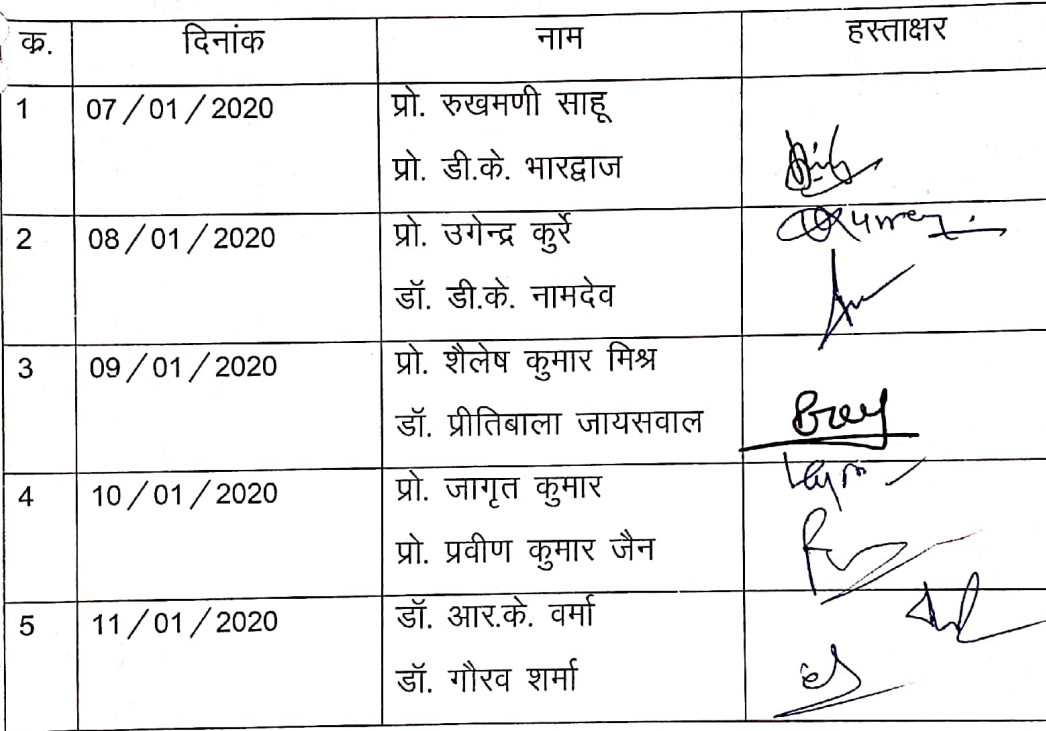 क. दिनांक नाम हस्ताक्षर
1 07/01/2020 प्रो. रुखमणी साहू
प्रो. डी.के. भारद्वाज
2 08/01/2020 प्रो. उगेन्द्र कुर्रे
डॉ. डी.के. नामदेव
3 09/01/2020 प्रो. शैलेष कुमार मिश्र
डॉ. प्रीतिबाला जायसवाल
4 10/01/2020 प्रो. जागृत कुमार
प्रो. प्रवीण कुमार जैन
5 11/01/2020 डॉ. आर.के. वर्मा
डॉ. गौरव शर्मा